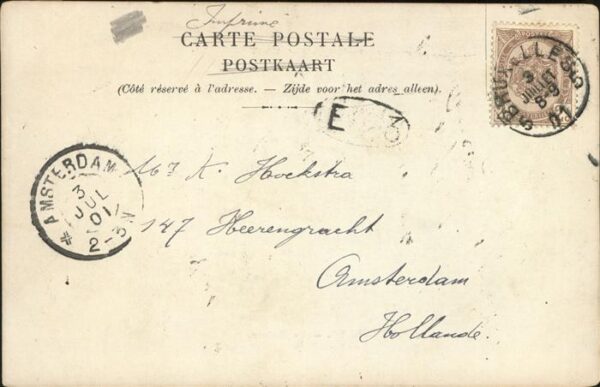 Imprimé
CARTE POSTALE
POSTKAART
(Côté réservé à l'adresse. — Zijde voor het adres alleen.)
BRUXELLES
JUILLET
E
AMSTERDAM
3
JUL
01
2-3N
167 K. Hoekstra
147 Heerengracht
Amsterdam
Hollande.